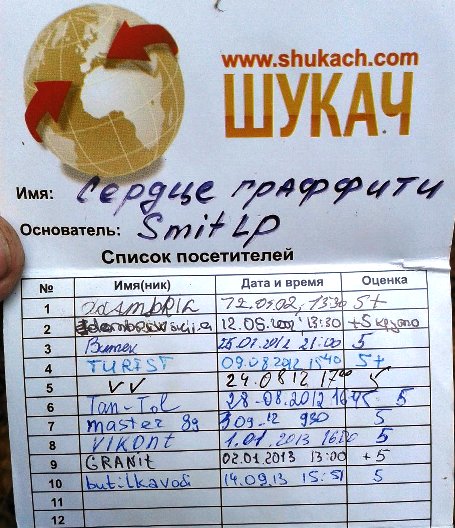 www.shukach.com
ШУКАЧ
Имя: Сердце граффити
Основатель: SmitLP
Список посетителей
№ Имя(ник) Дата и время Оценка
1 13:30 5+
2 13:30 +5
3 2012 21:00 5
4 TURIST 09.08.2012 15:40 5+
5 VV 24.08.12 17:00 5
6 Tan-Tol 28-08.2012 16:45 5
7 master 89 09.12 930 5
8 VIKONT 1.01.2013 5
9 GRANIT 02.01.2013 13:00 +5
10 butilkavodi 14.09.13 15:51 5
11
12